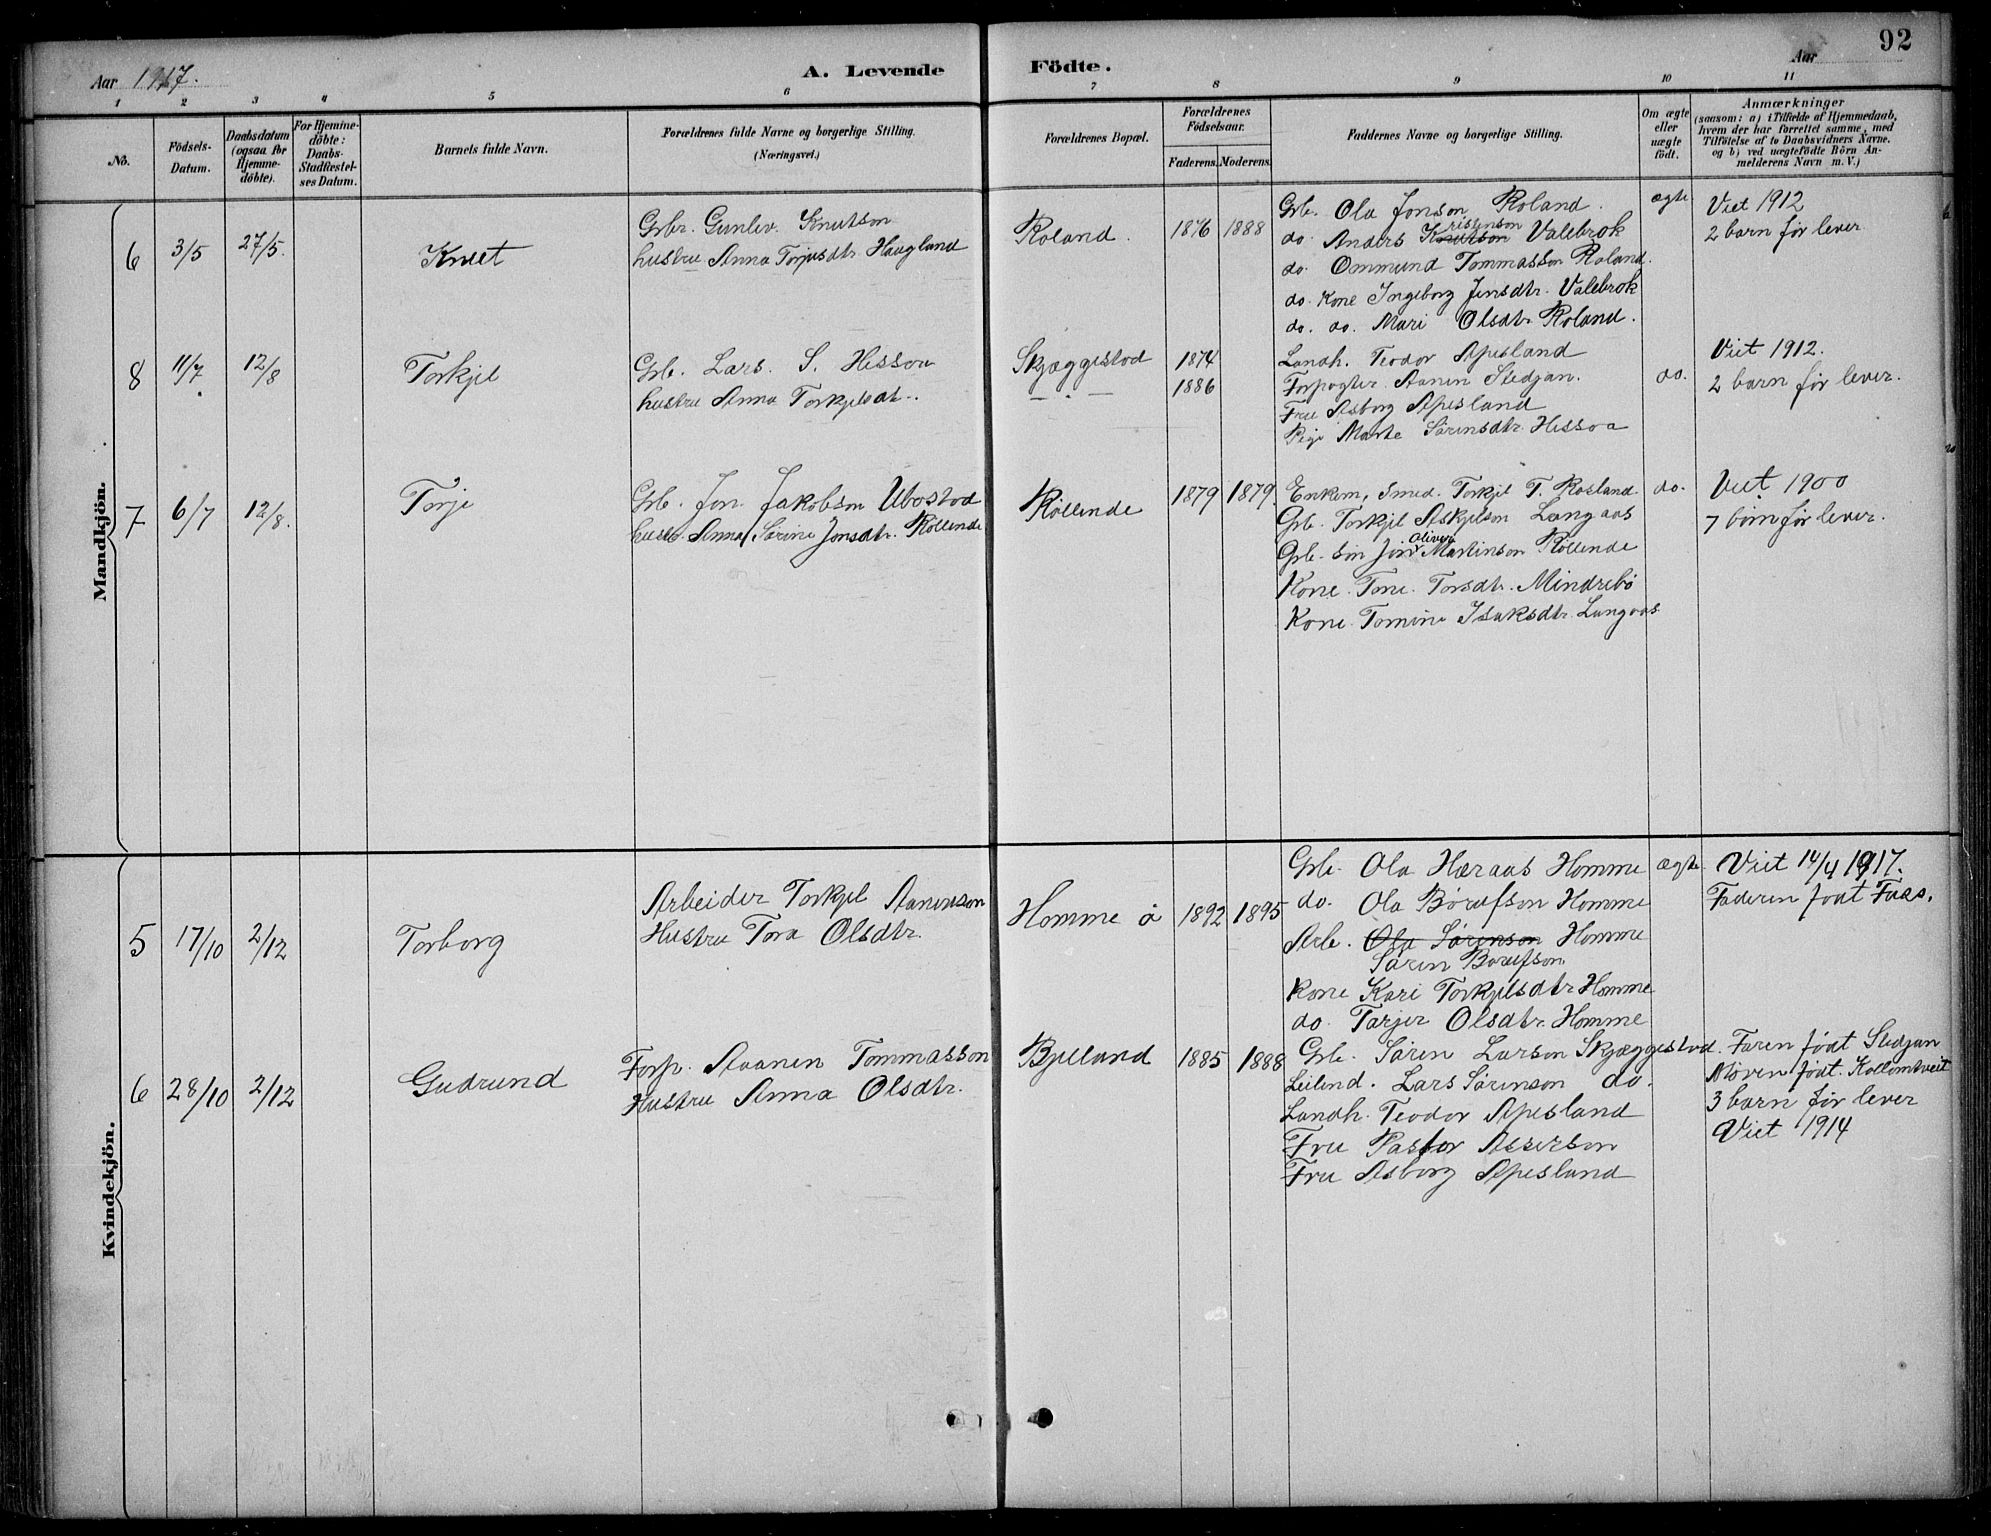 Aar 1917.
A. Levende Födte.
Aar
92
1 2 3 4 5 6 7 8 9 10 11
No.
Födsels-
Datum.
Daabsdatum
(ogsaa for
Hjemme-
döbte).
For Hjemme-
döbte:
Daabs-
Stadfæstel-
ses Datum.
Barnets fulde Navn.
Forældrenes fulde Navne og borgerlige Stilling.
(Næringsvei.)
Forældrenes Bopæl.
Forældrenes
Födselsaar.
Faderens. Moderens.
Faddernes Navne og borgerlige Stilling.
Om ægte
eller
uægte
födt.
Anmærkninger
(saasom: a) i Tilfælde af Hjemmedaab,
hvem der har forrettet samme, med
Tilföielse af to Daabsvidners Navne.
og b) ved uægtefödte Börn An-
melderens Navn m. V.)
Mandkjön.
6 3/5 27/5. Knut
Gbr. Gunlev Knutson
hustru Anna Torjusdtr. Haagland
Roland. 1876 1888
Grb. Ola Jonson Roland.
ristenson
do. Anders Knutson Valebrok
do. Ommund Tommasson Roland.
do. Kone Ingeborg Jensdtr. Valebrok
do. do. Mari Olsdtr. Roland.
ægte
Viet 1912
2 barn før lever
8 11/7 12/8 Torkjel
Grb. Lars. S. Hessoa
hustru Anna Torkjelsdt..
Skjæggestod 1874
— " — 1886
Landh. Teodor Apesland
Forpagter Aanen Stedjan.
Fru Asborg Apesland
Pige Marte Sørensdtr. Hessoa
do.
Viet 1912.
2 barn før lever.
7 6/7 12/8. Torje
Grb. Jon Jakobson Ubostod
hustr. Anna Sørine Jonsdtr. Røllende
Røllende 1879 1879
Enkem, Smed. Torkjel T. Rosland.
Grb. Torkjel Askjelson Langaas
Oliver
Grb. søn Jon Martinson Røllende
Kone Tone Torsdtr. Mindrebø
Kone Tomine Isaksdtr. Langaas.
do.
Viet 1900
7 børn før lever.
Kvindekjön.
5 17/10 2/12 Torborg
Arbeider Torkjel Aanenson
Hustru Tora Olsdtr.
Homme ö 1892 1895
Grb. Ola Hæraas Homme
do. Ola Børufson Homme
Arb. Ola Sørenson Homme
Søren Borufson
Kone Kari Torkjelsdtr Homme
do. Tarjer Olsdtr. Homme
ægte
Viet 14/4 1917.
Faderen født Faas.
6 28/10 2/12 Gudrund
Forp. Aaanen Tommasson
Hustru Anna Olsdtr.
Bjelland 1885 1888
Grb. Søren Larson Skjæggestod.
Leilend. Lars Sørenson do.
Landh. Teodor Apesland
Fru Pastor Asserson
Fru Asborg Apesland
Faren født Stedjan
Moren født. Kollomtveit
3 barn før lever
Viet 1914